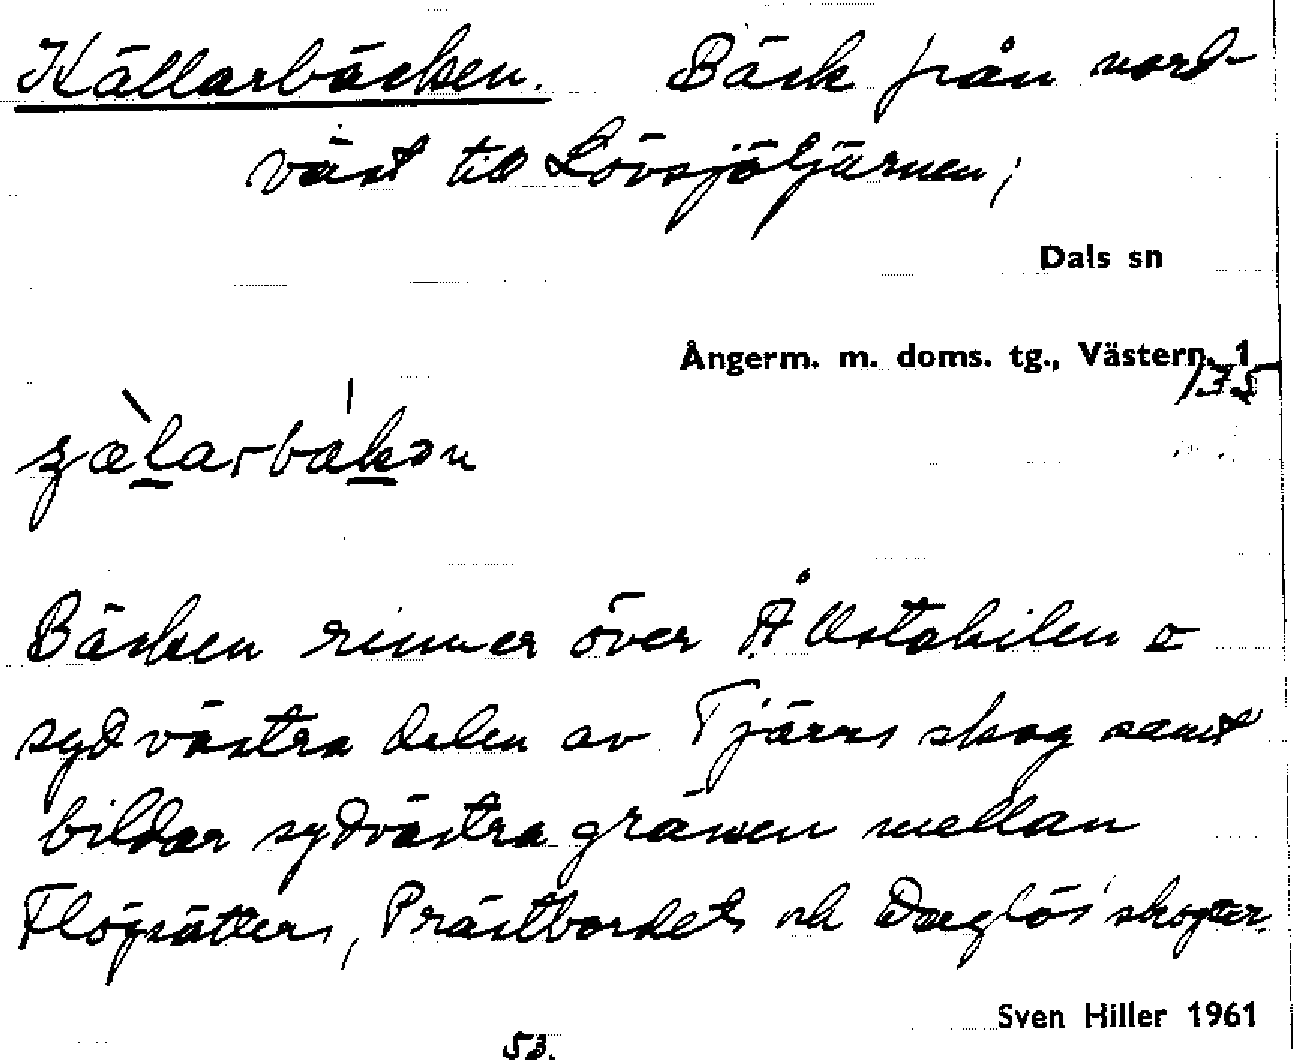 Källarbäcken. Bäck från nord-
väst till Lövsjötjärnen;
Dals sn
Ångerm. m. doms. tg., Västern. 1
135
Bäcken rinner över Ållstakilen o
sydvästra delen av Tjärns skog samt
bildar sydvästra gränsen mellan
Flögsätters, Prästbordets och skogar.
Sven Hiller 1961
53.